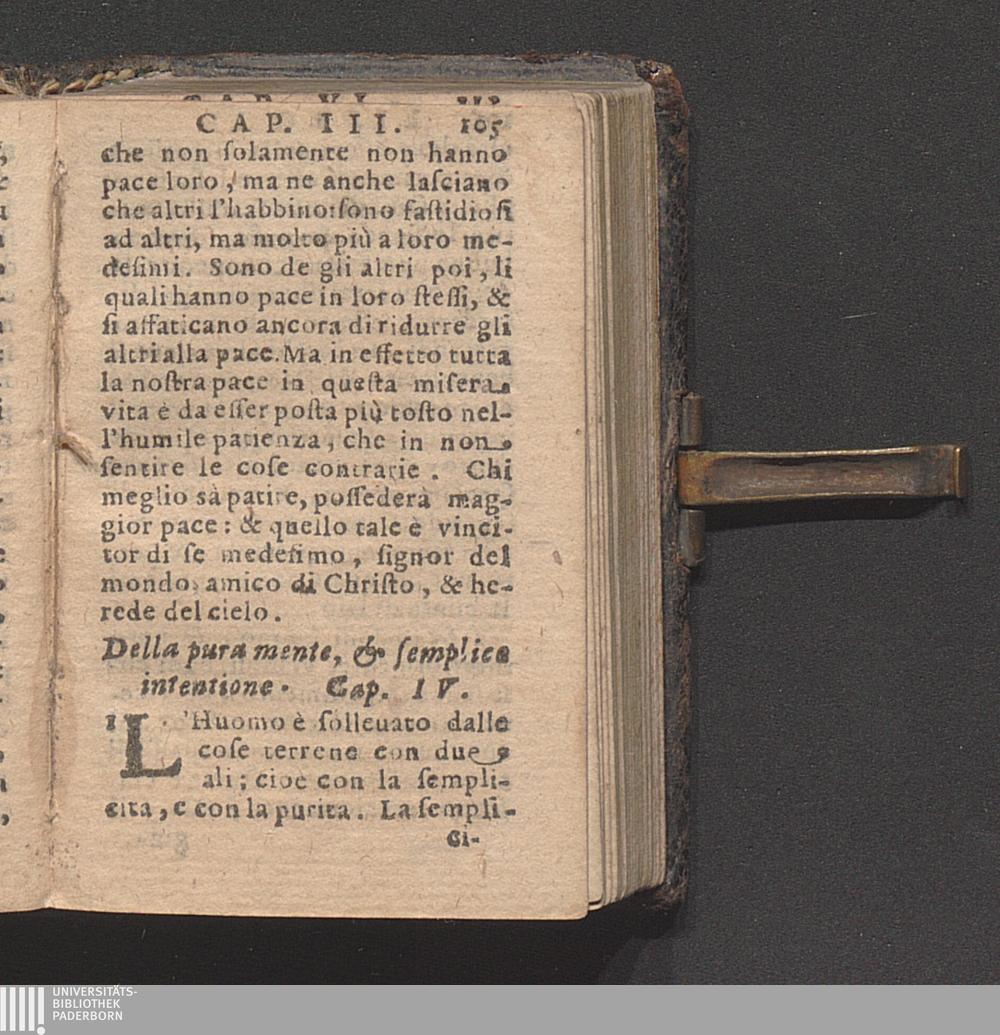 CAP. III. 105
che non ſolamente non hanno
pace loro, ma ne anche laſciano
che altri l'habbino: ſono faſtidioſi
ad altri, ma molto più a loro me-
deſimi. Sono de gli altri poi, li
quali hanno pace in loro ſteſſi, &
ſi affaticano ancora di ridurre gli
altri alla pace. Ma in effetto tutta
la noſtra pace in queſta miſera
vita è da eſſer poſta più toſto nel-
l'humile patienza, che in non
ſentire le coſe contrarie. Chi
meglio sà patire, poſſederà mag-
gior pace: & quello tale è vinci-
tor di ſe medeſimo, ſignor del
mondo, amico di Chriſto, & he-
rede del cielo.
Della pura mente, & ſemplice
intentione. Cap. IV.
1 L'Huomo è ſolleuato dalle
coſe terrene con due
ali; cioe con la ſempli-
cita, e con la purita. La ſempli-
ci-
UNIVERSITÄTS-
BIBLIOTHEK
PADERBORN